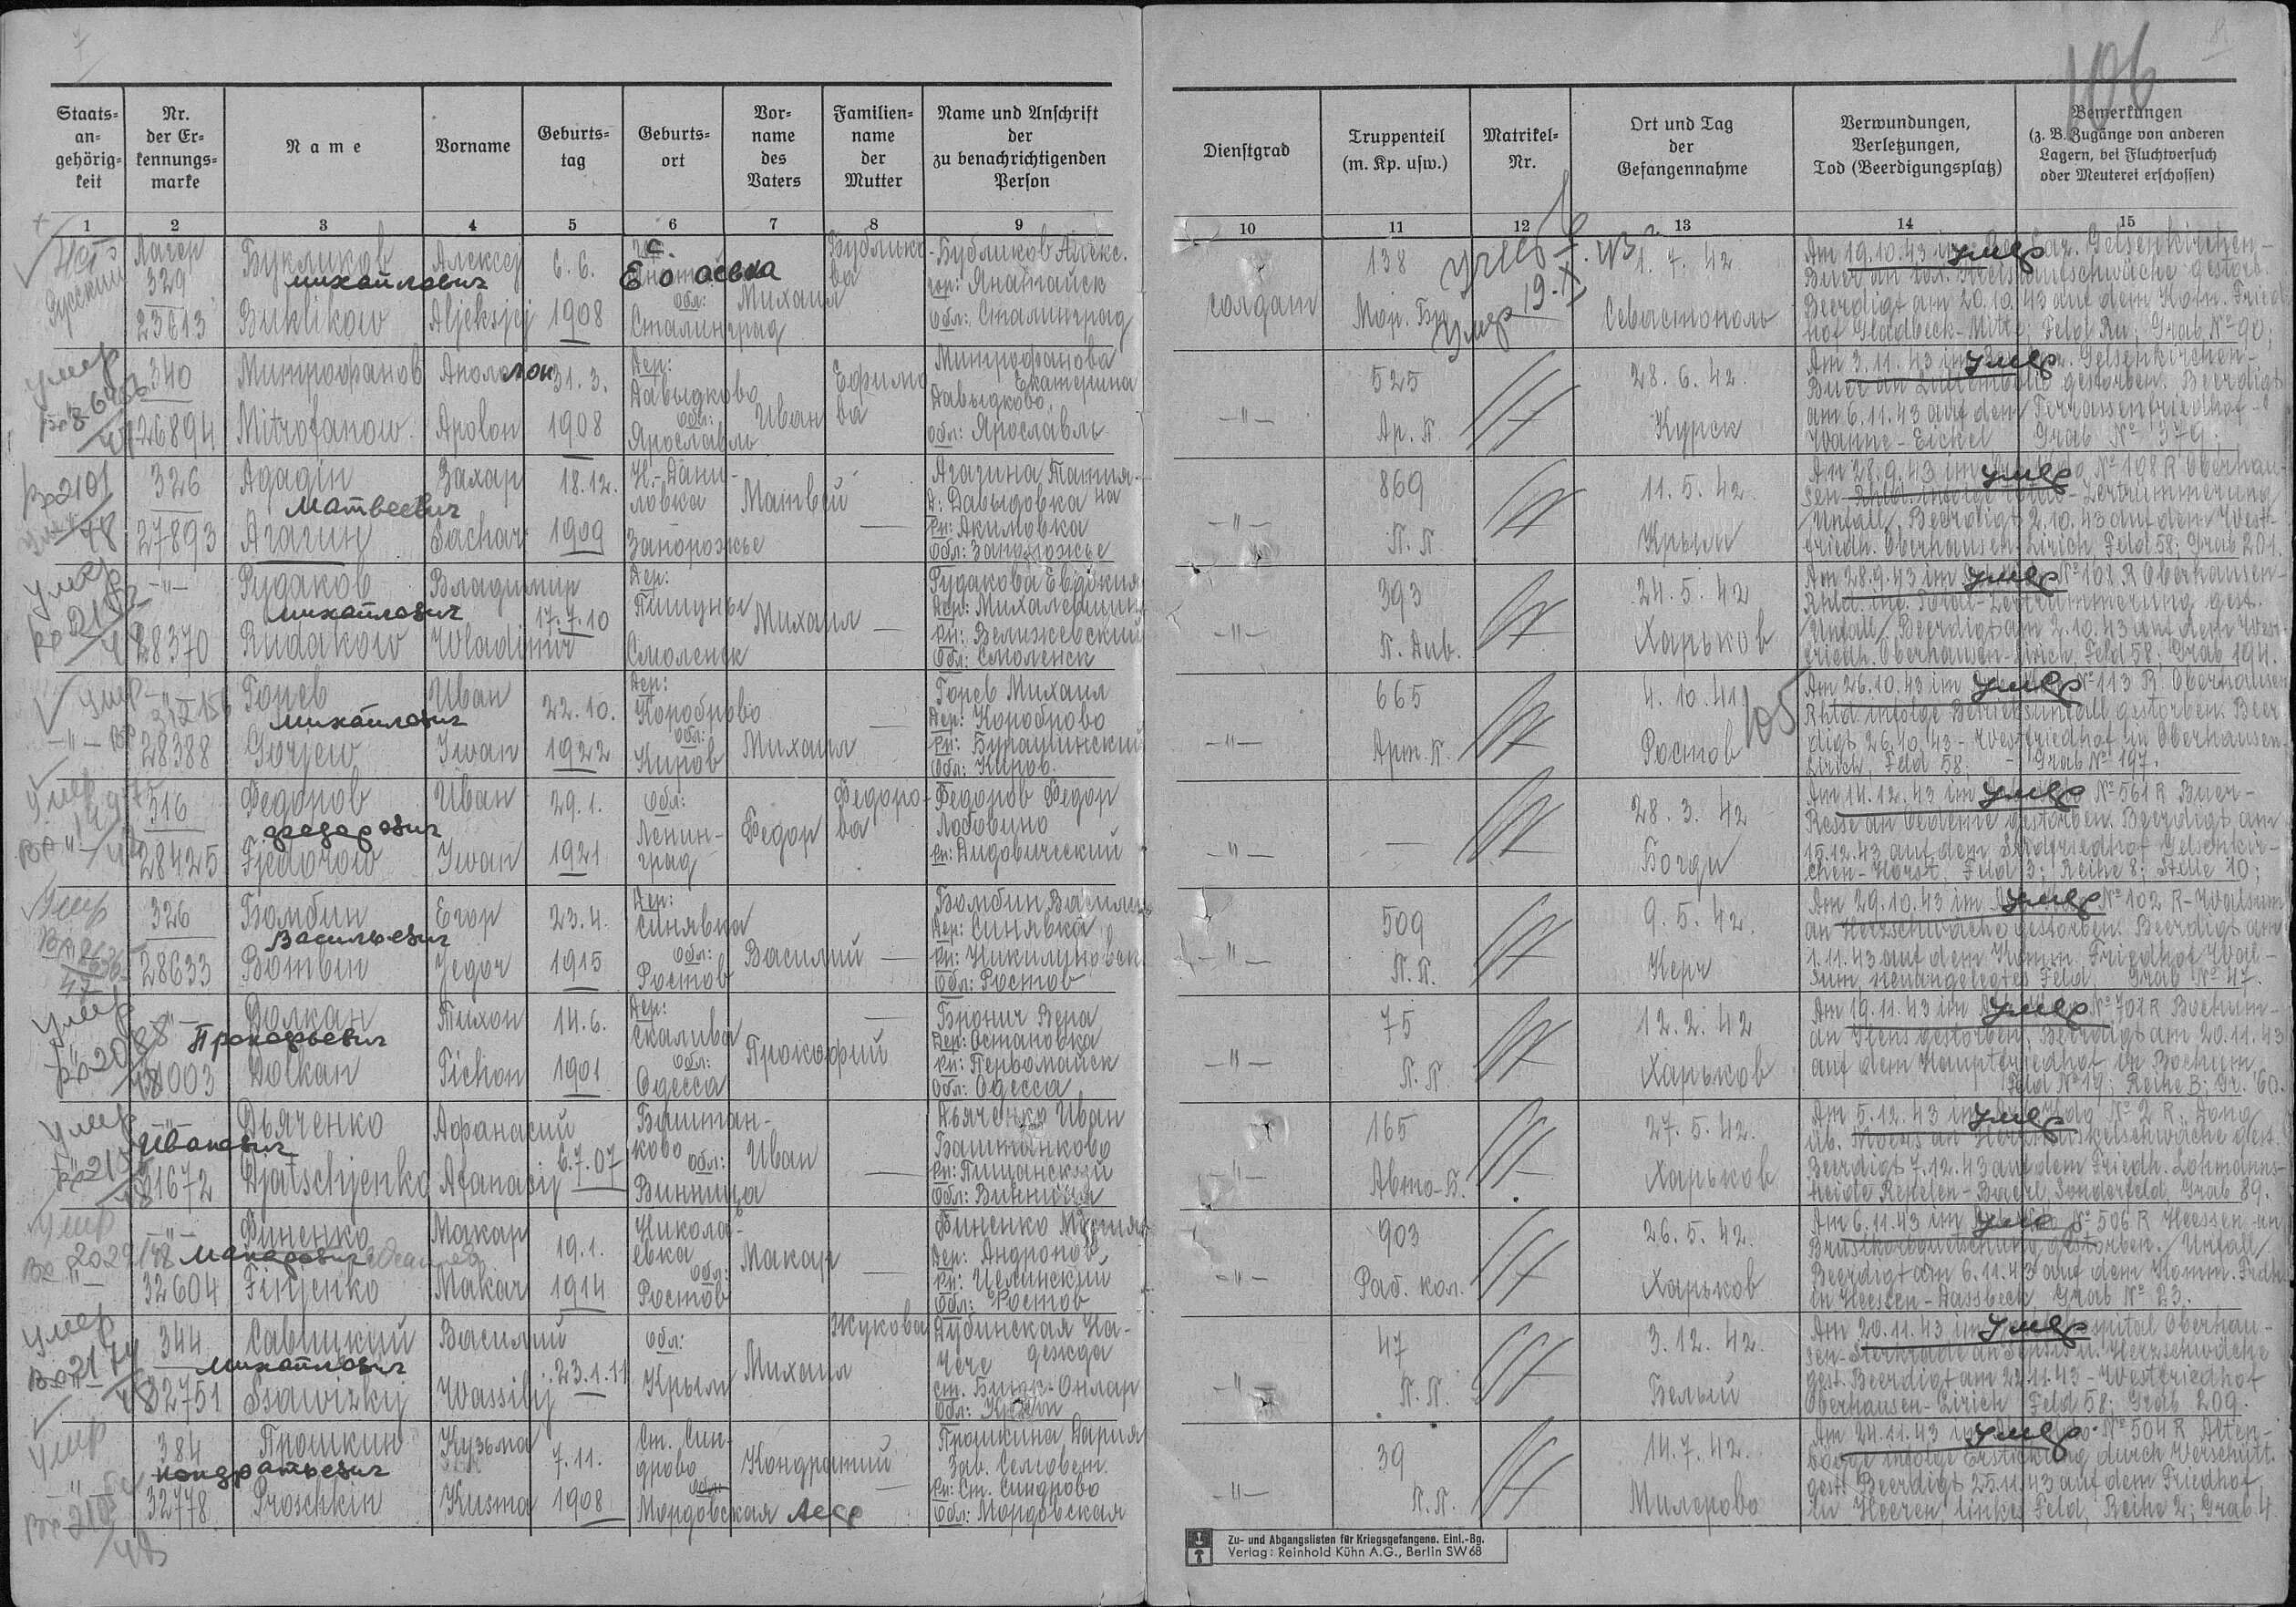 7
8
106
Staats-
an-
gehörig-
keit
Nr.
der Er-
kennungs-
marke
Name
Vorname
Geburts-
tag
Geburts-
ort
Vor-
name
des
Vaters
Familien-
name
der
Mutter
Name und Anschrift
der
zu benachrichtigenden
Person
Dienstgrad
Truppenteil
(m. Kp. usw.)
Matrikel-
Nr.
Ort und Tag
der
Gefangennahme
Verwundungen,
Verletzungen,
Tod (Beerdigungsplatz)
Bemerkungen
(z. B. Zugänge von anderen
Lagern, bei Fluchtversuch
oder Meuterei erschossen)
1 2 3 4 5 6 7 8 9 10 11 12 13 14 15
Русский
Лагер
329
23613
Букликов
михайлович
Buklikow
Алексеj
Aljeksjej
6. 6.
1908
обл:
Сталинград
Михаил
Бублико-
ва
Бубликов Алекс.
гор: Янатайск
обл: Сталинград
солдат
138
Мор. Бр
Умер 19.X
1. 7. 42
Севастополь
Am 19.10.43
умер
Gelsenkirchen-
Buer an
gestorb.
Beerdigt am 20.10.43 auf dem Kom. Fried
hof Gladbeck-Mitte; Feld Ru; Grab № 90;
умер
340
26894
Митрофанов
Mitrofanow
Аполлон
Apolon
31. 3.
1908
Дер:
Давыдково
обл:
Ярославль
Иван
Ефимо
ва
Митрофанова
Екатерина
Давыдково
обл: Ярославль
-"-
525
Ар. П.
28. 6. 42.
Курск
Am 3. 11. 43 im
умер
Gelsenkirchen-
Buer an
gestorben. Beerdigt
am 6.11.43 auf dem Terrassenfriedhof-
Wanne-Eickel Grab № 379.
Вр2101
48
326
27893
Agagin
Матвеевич
Агагин
Захар
Sachar
18.12.
1909
Н.-Дани-
ловка
Запорожье
Матвей
Агагина Татья-
на
Д: Давыдовка
Рн: Акимовка
Обл: Запорожье
-"-
869
П. П.
11. 5. 42.
Крым
Am 28.9.43 im
умер
№ 108 R Oberhau-
sen-Rhld. infolge Total-Zertrümmerung
/Unfall/. Beerdigt 2.10.43 auf dem West-
friedh. Oberhausen-Lirich, Feld 58; Grab 201.
умер
-"-
28370
Рудаков
михайлович
Rudakow
Владимир
Wladimir
17.7.10
Дер:
Пищулы
Смоленск
Михаил
Рудакова Евдокия
Дер: Михалевщина
Рн: Велижевский
Обл: Смоленск
-"-
393
П. Див.
24. 5. 42
Харьков
Am 28.9.43 im
умер
№ 108 R Oberhausen-
Rhld. inf. Total-Zertrümmerung gest.
/Unfall/ Beerdigt am 2.10.43 auf dem West-
friedh. Oberhausen-Lirich, Feld 58; Grab 194.
Умер
28388
Горев
михайлович
Gorjew
Иван
Iwan
22. 10.
1922
Дер:
Короброво
обл:
Киров
Михаил
Горев Михаил
Дер: Короброво
Обл: Киров
-"-
665
Арт. П.
4. 10. 41
Ростов
105
Am 26.10.43 im
умер
№ 113 R. Oberhausen
Rhld. infolge Betriebsunfall gestorben. Beer
digt 26.10.43 - Westfriedhof in Oberhausen
Lirich, Feld 58; - Grab № 197.
умер
316
28425
Федоров
федорович
Fjedorow
Иван
Iwan
29. 1.
1921
обл:
Ленин-
град
Федор
Федоро-
ва
Федоров Федор
Лобовино
-"-
28. 3. 42
Am 14. 12. 43 im
умер
№ 561 R Buer-
Resse an Oedeme gestorben. Beerdigt am
15.12.43 auf dem Südfriedhof Gelsenkir-
chen-Horst, Feld 3; Reihe 8; Stelle 10;
Умер
326
28633
Бомбин
Васильевич
Bombin
Егор
Jegor
23. 4.
1915
Дер:
Синявка
обл:
Ростов
Василий
Бомбин Василий
Дер: Синявка
Обл: Ростов
-"-
509
П.П.
9. 5. 42.
Керч
Am 29.10.43 im
умер
№ 102 R-Walsum
an Herzschwäche gestorben. Beerdigt am
1.11.43 auf dem Komm. Friedhof Wal-
sum, neuangelegtes Feld, Grab № 47.
умер
-"-
Долкан
Прокофьевич
Dolkan
Тихон
Tichon
14. 6.
1901
Дер:
Скалива
обл:
Одесса
Прокофий
Бронич Вера
Дер: Остановка
Рн: Первомайск
Обл: Одесса
-"-
75
П. П.
12. 2. 42
Харьков
Am 19.11.43 im
умер
№ 701 R Bochum-
an Ileus gestorben. Beerdigt am 20.11.43
auf dem Hauptfriedhof in Bochum,
Feld № 19; Reihe B; Gr. 60.
умер
-"-
31672
Дьяченко
Иванович
Djatschjenko
Афанасий
Afanasij
6.7.07
Баштан-
ково
обл:
Винница
Иван
Дьяченко Иван
Баштанково
Рн: Пищанский
Обл: Винница
-"-
165
Авто-Б.
27. 5. 42.
Харьков
Am 5. 12. 43 im
умер
№ 2 R. Dong
üb. Moers an Herzmuskelschwäche gest.
Beerdigt 7.12.43 auf dem Friedh. Lohmanns-
heide Repelen-Baerl, Sonderfeld, Grab 89.
Умер
-"-
32604
Финенко
Макарович
Finjenko
Макар
Makar
19.1.
1914
Никола-
евка
обл:
Ростов
Макар
Финенко Мария
Рн: Целинский
Обл: Ростов
-"-
903
Раб. кол.
26. 5. 42.
Харьков
Am 6.11.43 im
умер
№ 506 R Heessen an
Brustkorbquetschung gestorben. /Unfall/
Beerdigt am 6.11.43 auf dem Komm. Frdh.
in Heessen-Dassbeck, Grab № 23.
умер
344
32751
Савицкий
михайлович
Ssawizkij
Василий
Wassilij
23.1.11
обл:
Крым
Михаил
Жукова
Дубинская На-
дежда
ст. Биюк-Онлар
Обл: Крым
-"-
47
П. П.
3. 12. 42.
Белый
Am 20.11.43 im
умер
Oberhau-
sen-Sterkrade an Sepsis u. Herzschwäche
gest. Beerdigt am 22.11.43 - Westfriedhof
Oberhausen-Lirich, Feld 58; Grab 209.
умер
384
32778
Прошкин
кондратьевич
Proschkin
Кузьма
Kusma
7. 11.
1908
Ст. Син-
дрово
обл:
Мордовская АССР
Кондратий
Прошкина Дария
Зав. Селсовет.
Рн: Ст. Синдрово
Обл: Мордовская
-"-
39
П. П.
14. 7. 42.
Милерово
Am 24.11.43 im
умер
№ 504 R Alten-
bögge infolge Erstickung durch Verschütt.
gest. Beerdigt 25.11.43 auf dem Friedhof
in Heeren, linkes Feld, Reihe 2; Grab 4
Zu- und Abgangslisten für Kriegsgefangene. Einl.-Bg.
Verlag: Reinhold Kühn A.G., Berlin SW 68